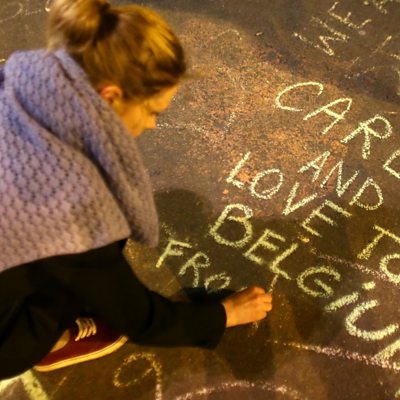 We
CARE
AND
LOVE TO
Belgium
FRO